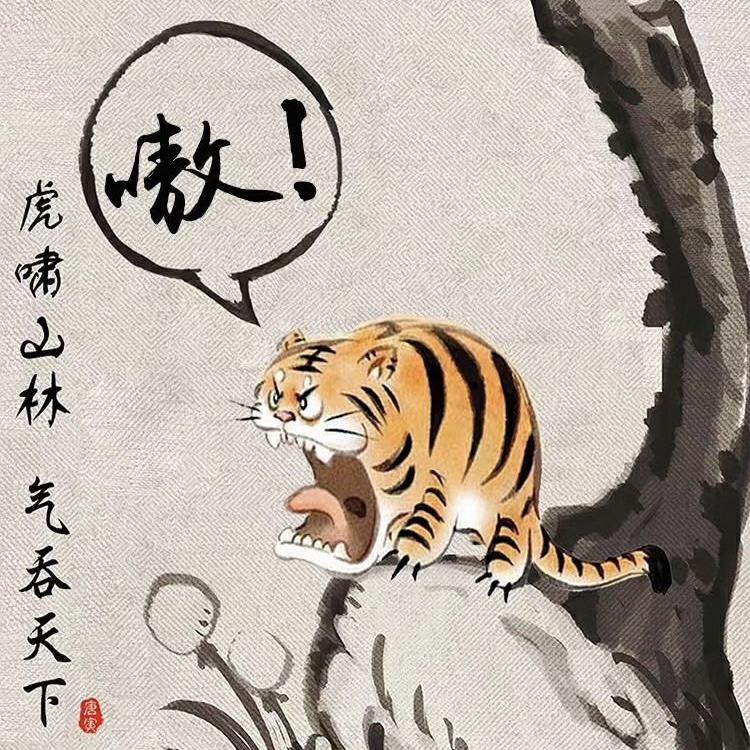 嗷！
虎啸山林 气吞天下
唐寅